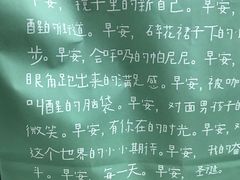 安，镜子里的新自己。早安，
醒的街道。早安，碎花裙子下的
步。早安，会呼吸的帕尼尼。早安，
眼角跑出来的满足感。早安，被咖
叫醒的脑袋。早安，对面男孩子的
微笑。早安，有你在的时光。早安，对
这个世界的小小期待。早安，我的
斗。早安，每一天。早安，圣迦。